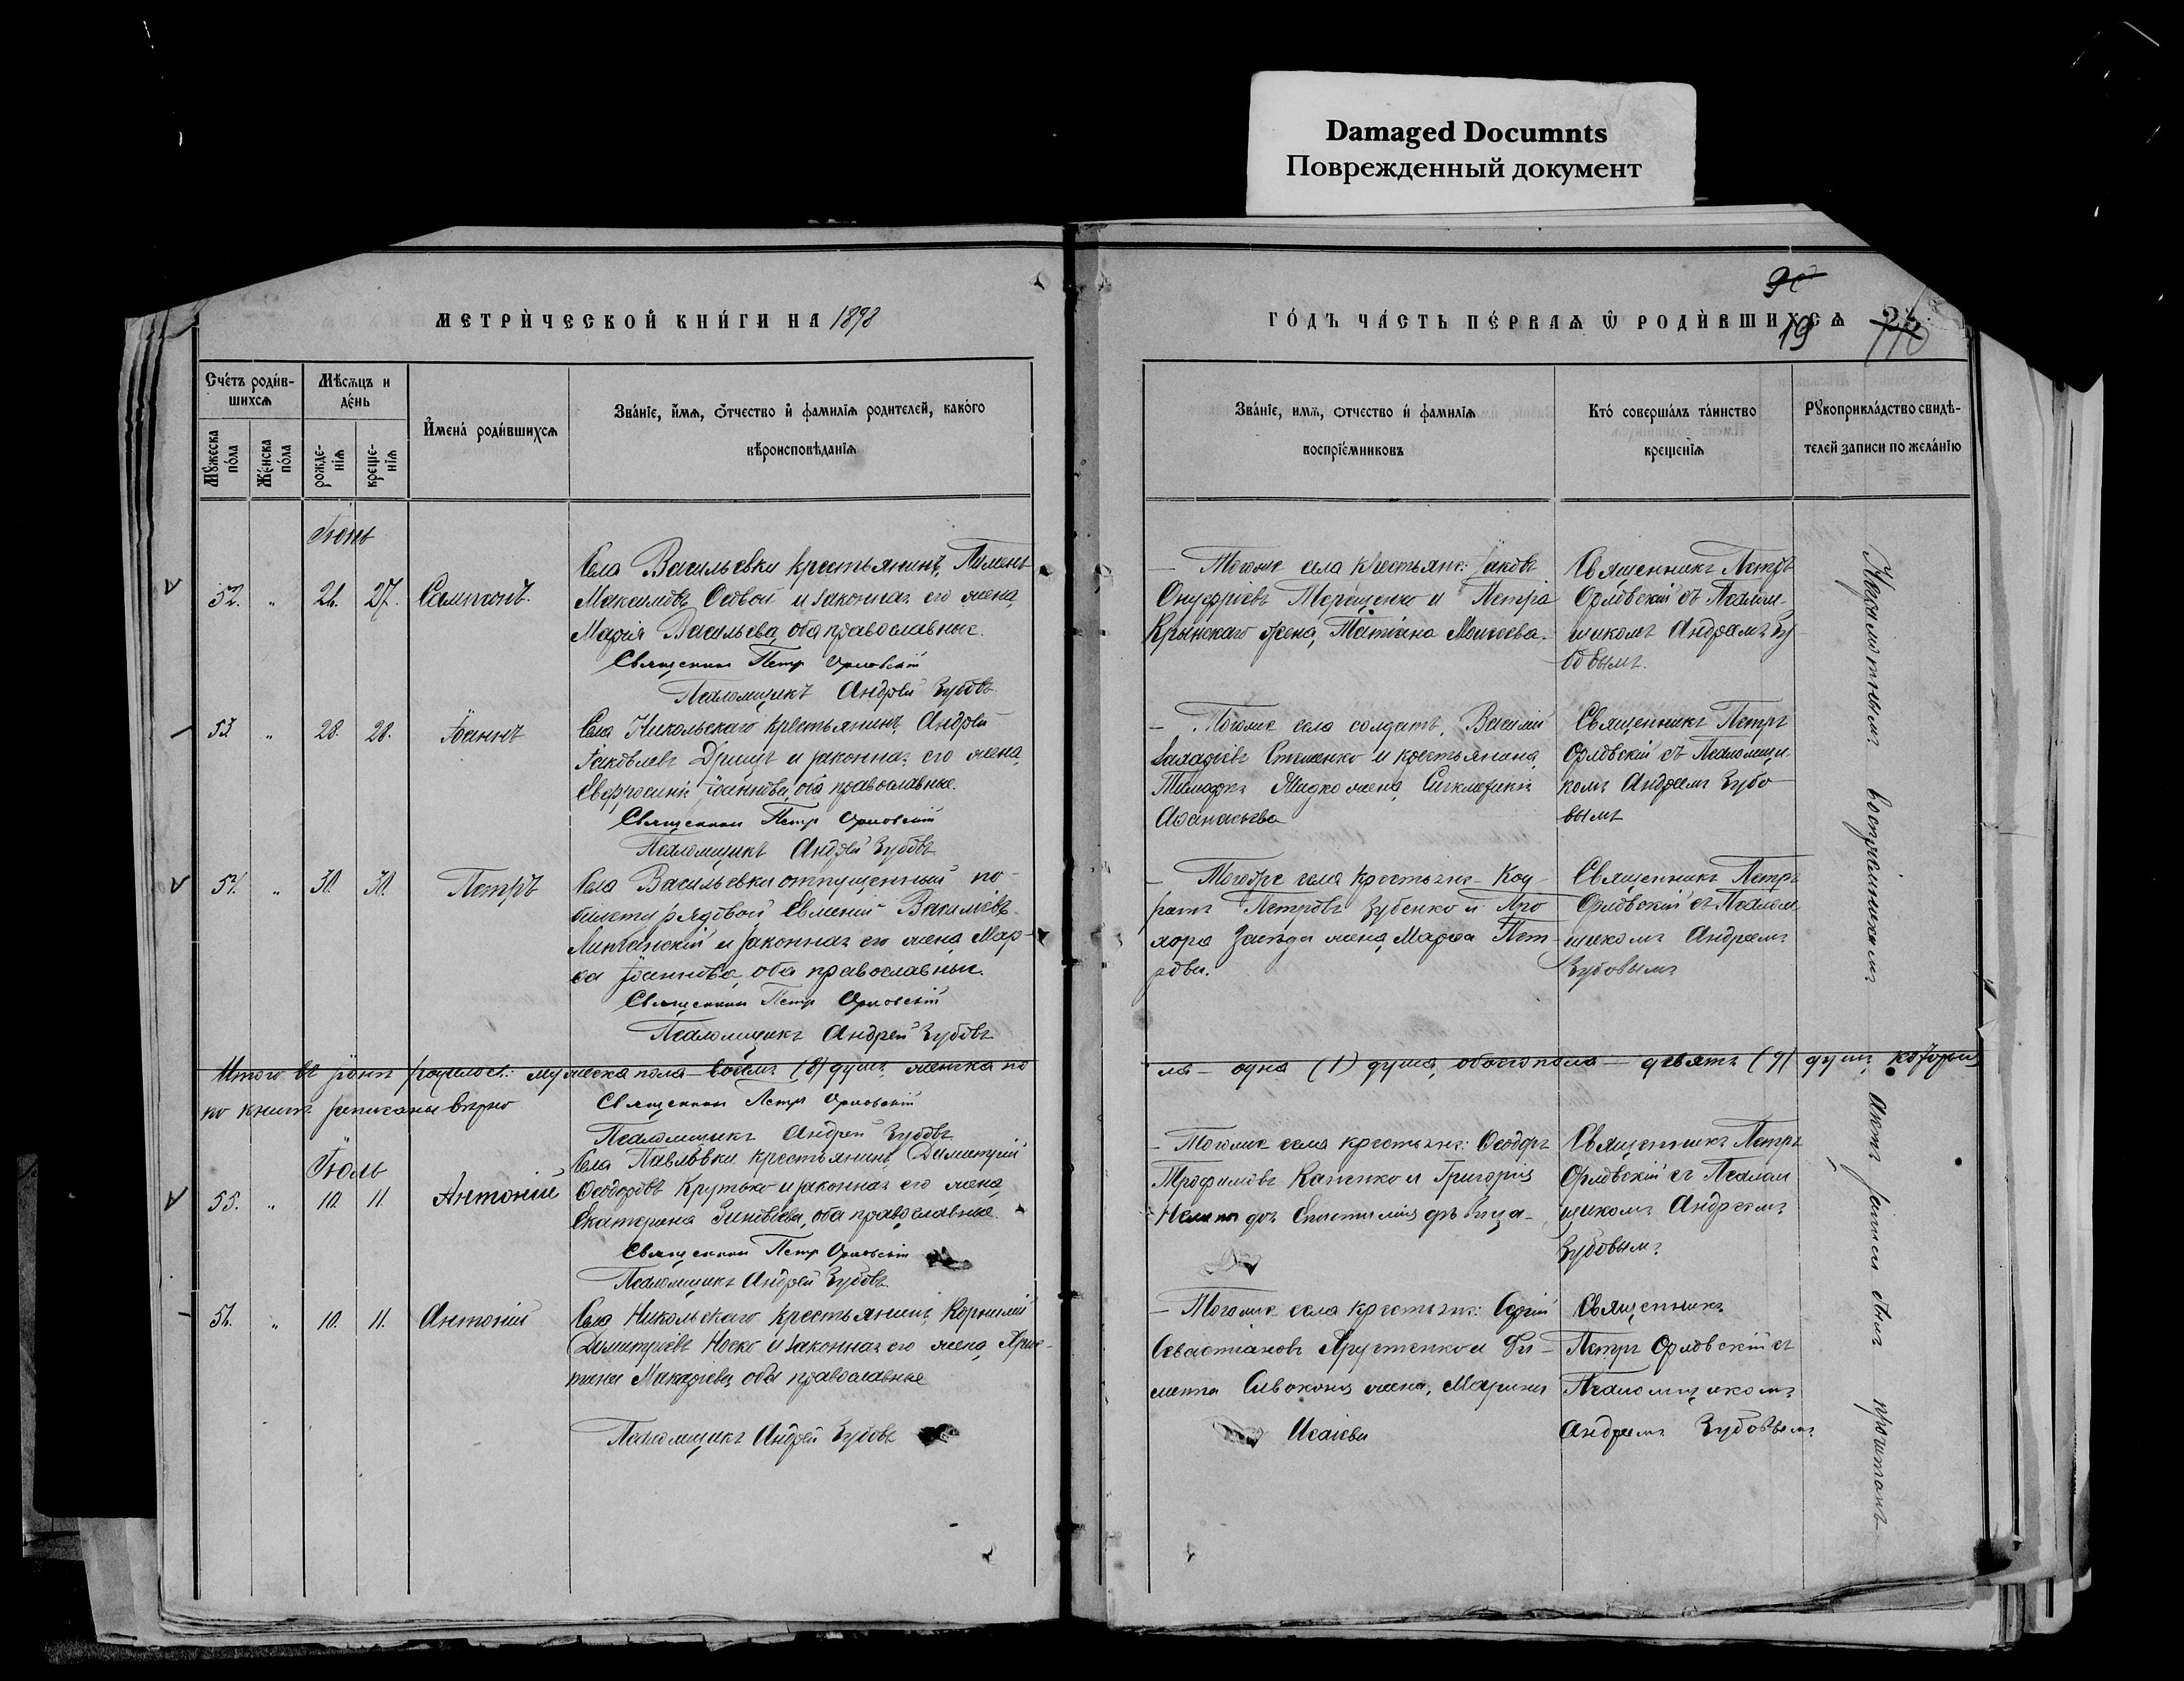 Damaged Documnts
Поврежденный документ
МЕТРИЧЕСКОЙ КНИГИ НА 1898
ГОДЪ ЧАСТЬ ПЕРВАЯ Ѡ РОДИВШИХСЯ
19
Счетъ родив-
шихся
Мѣсяцъ и
день
Мужеска
пола
Женска
пола
рожде-
нія
креще-
нія
Имена родившихся
Званіе, имя, отчество и фамилія родителей, какого
вѣроисповѣданія
Званіе, имя, отчество и фамилія
воспріемниковъ
Кто совершалъ таинство
крещенія
Рукоприкладство свидѣ-
телей записи по желанію
Іюнь
52. " 26. 27. Сампсонъ.
Села Васильевки крестьянинъ, Пименъ
Максимовъ Особой и законная его жена,
Марія Васильева, оба православные.
Священник Петр Орловскій
Псаломщикъ Андрей Зубовъ
— Тогоже села крестьяне: Іаковъ
Онуфріевъ Терещенко и Петра
Крынскаго жена, Татіана Моисеева.
Священникъ Петръ
Орловскій съ Псалом-
щикомъ Андреемъ Зу-
бовымъ.
53 " 28. 28. Іоаннъ
Села Никольскаго крестьянинъ, Андрей
Іаковлевъ и законная его жена,
Евфросинія Іоаннова, оба православные.
Священник Петр Орловскій
Псаломщикъ Андрей Зубовъ
— Тогоже села солдатъ, Василій
и крестьянина
жена,
Аѳанасьева
Священникъ Петръ
Орловскій съ Псаломщи-
комъ Андреемъ Зубо-
вымъ
54. " 30. 30. Петръ
Села Васильевки отпущенный по
билету рядовой Евменій Василіевъ
и законная его жена Мар-
ѳа Іоаннова, оба православные.
Священник Петр Орловскій
Псаломщикъ Андрей Зубовъ
— Тогоже села крестьяне Код-
ратъ Петровъ Зубенко и Про
хора жена, Марѳа Пет-
рова.
Священникъ Петръ
Орловскій съ Псалом-
щикомъ Андреемъ
Зубовымъ
Итого въ іюнѣ родилось: мужеска пола — восемь (8) душъ, женска по
ла — одна (1) душа, обоего пола — девять (9) душъ, которыя
по книгѣ записаны вѣрно
Священник Петр Орловскій
Псаломщикъ Андрей Зубовъ
Іюль
55. " 10. 11. Антоній
Села Павловки крестьянинъ, Димитрій
Ѳеодоровъ Крутько и законная его жена,
Екатерина Зиновіева, оба православные.
Священник Петр Орловскій
Псаломщикъ Андрей Зубовъ
— Тогоже села крестьяне: Ѳеодоръ
Трофимовъ и Григорія
Священникъ Петръ
Орловскій съ Псалом
щикомъ Андреемъ
Зубовымъ
56. " 10. 11. Антоній
Села Никольскаго крестьянинъ, Корнилій
Димитріевъ Носко и законная его жена, Хрис-
тина Макаріева, оба православные
Псаломщикъ Андрей Зубовъ
— Тогоже села крестьяне: Сергій
Севастіановъ Хрустенко и Фи-
жена, Марина
Исаіева
Священникъ
Петръ Орловскій съ
Псаломщикомъ
Андреемъ Зубовымъ
Неграмотнымъ воспріемникамъ актъ записи былъ прочитанъ